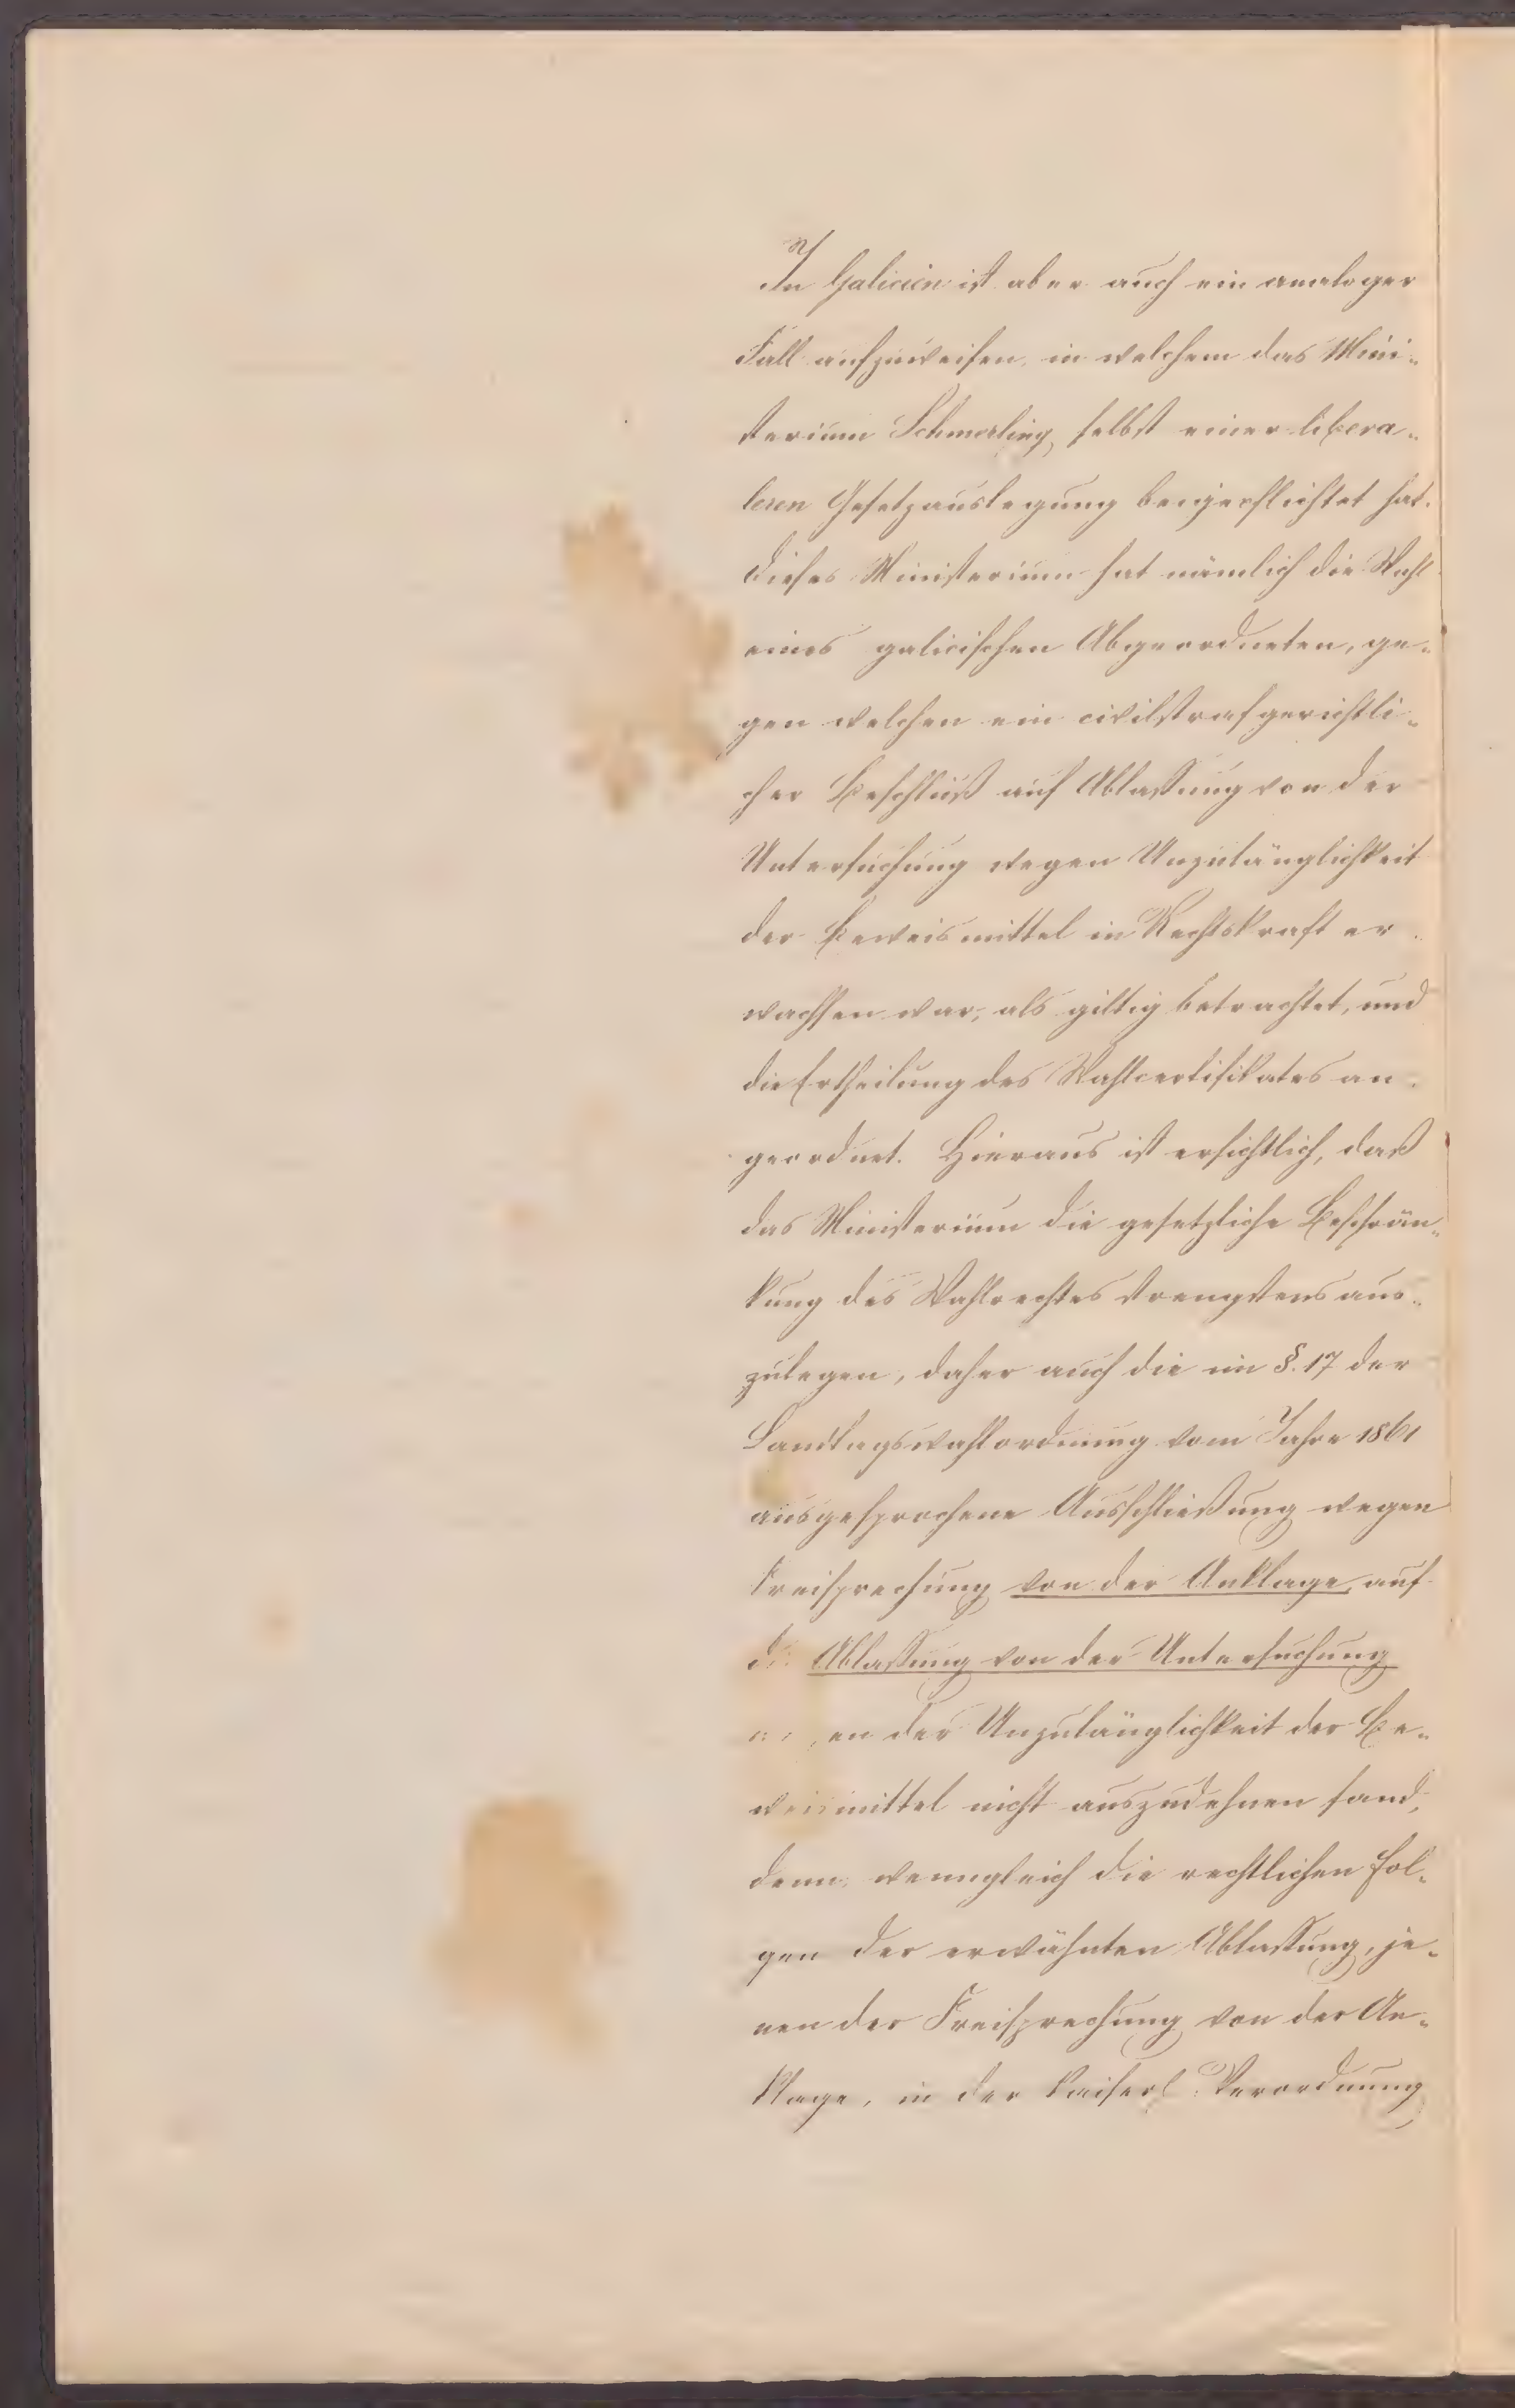 In Galicien ist aber auch ein analoger
Fall aufzuweisen, in welchem das Mini-
sterium Schmerling selbst einer libera-
leren Gesetzauslegung beigepflichtet hat.
Dieses Ministerium hat nämlich die Wahl
eines galicischen Abgeordneten, ge-
gen welchen ein civilstrafgerichtli-
cher Beschluß auf Ablassung von der
Untersuchung wegen Unzulänglichkeit
der Beweismittel in Rechtskraft er-
wachsen war, als giltig betrachtet, und
die Ertheilung des Wahlcertifikates an-
geordnet. Hieraus ist ersichtlich, daß
das Ministerium die gesetzliche Beschrän-
kung des Wahlrechtes strengstens aus-
zulegen, daher auch die im §. 17 der
Landtagswahlordnung vom Jahre 1861
ausgesprochene Ausschließung wegen
Freisprechung von der Anklage, auf
Ablassung von der Untersuchung
der Unzulänglichkeit der Be-
weismittel nicht auszudehnen fand,
denn, wenngleich die rechtlichen Fol-
gen der erwähnten Ablassung, je-
nen der Freisprechung von der An-
klage, in der kaiserl. Verordnung